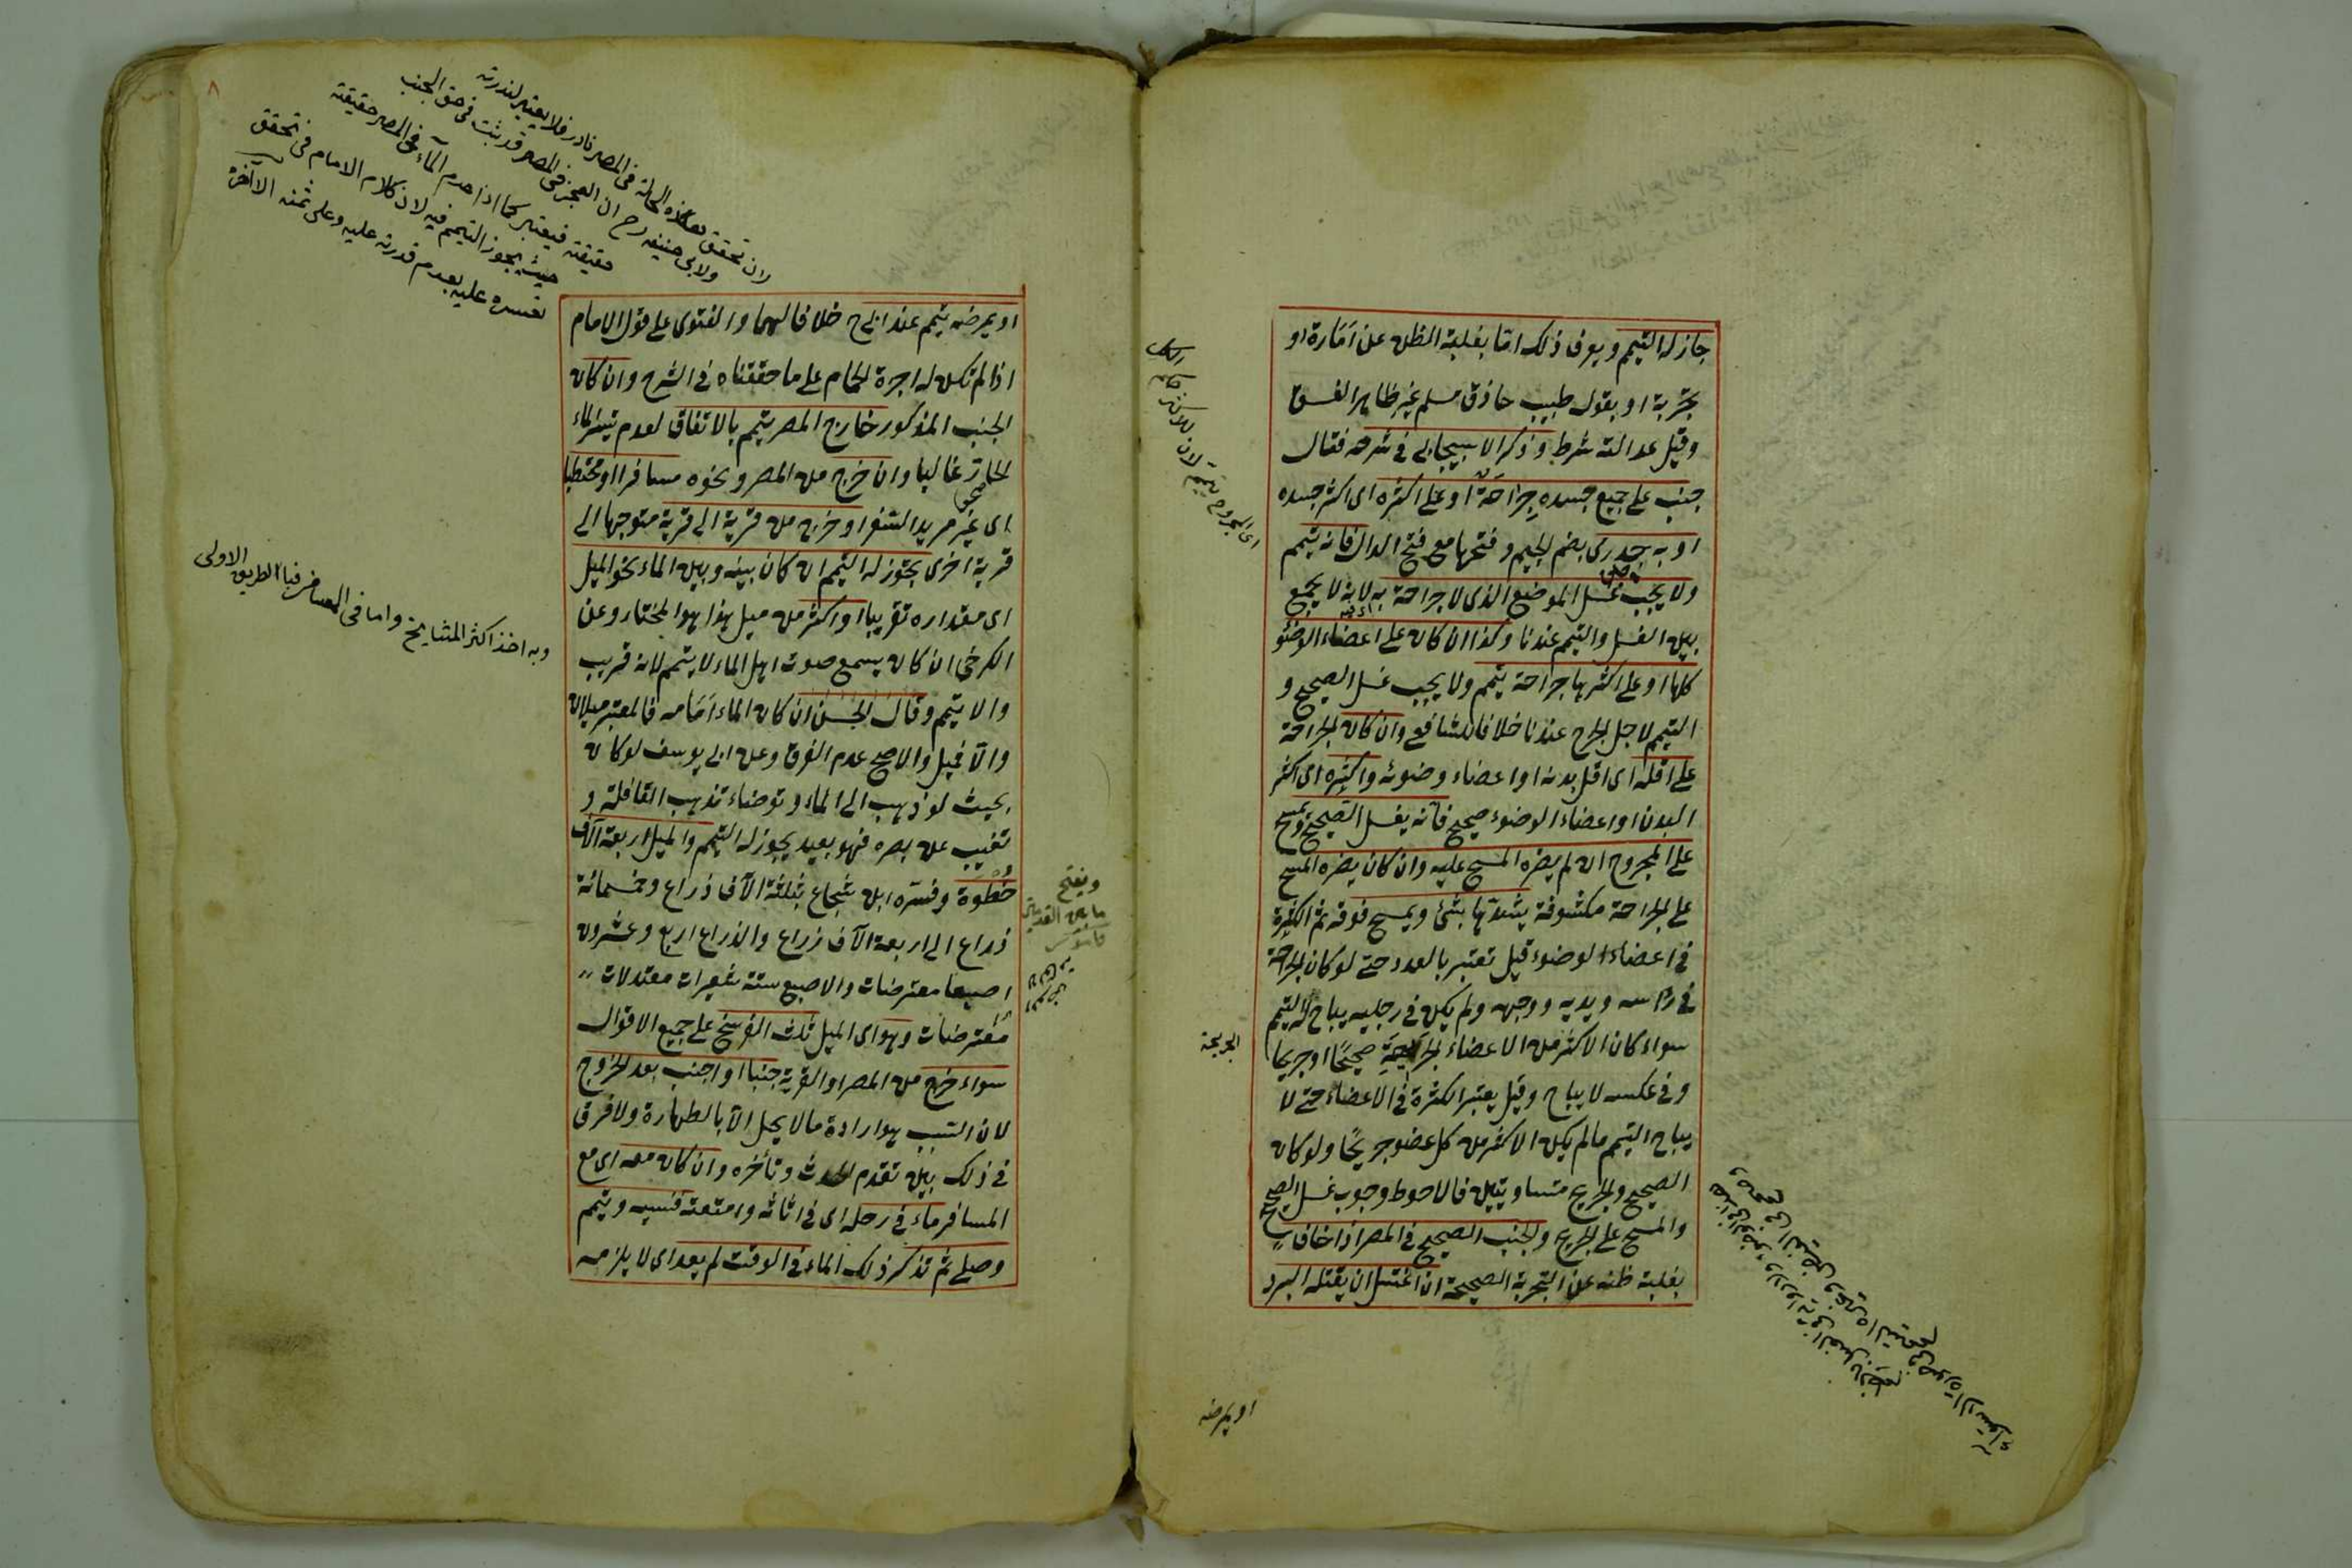 جاز له التيمم ويعرف ذلك اما بغلبة الظن عن اَمَارة او
تجربة او بقول طبيب حاذق مسلم غير ظاهر الفسق
وقيل عدالته شرط وذكر الاسبيجابى فى شرحه فقال
جنب على جميع جسده جِرَاحَة او على اكثره اى اكثر جسده
او به جدرى بضم الجيم وفتحها مع فتح الدال فانه يتيمم
ولا يجب غسل الموضع الذى لا جراحة به لانه لا يجمع
بين الغسل والتيمم عندنا وكذا ان كان على اعضاء الوضوء
كلها او على اكثرها جراحة يتيمم ولا يجب غسل الصحيح و
التيمم لاجل الجرح عندنا خلافا للشافعى وان كان الجراحة
على اقله اى اقل بدنه او اعضاء وضوئه واكثره اى اكثر
البدن او اعضاء الوضوء صحيح فانه يغسل الصحيح ويمسح
على المجروح ان لم يضره المسح عليه وان كان يضره المسح
على الجراحة مكشوفة يشدّها بشئ ويمسح فوقه ثم الكثرة
فى اعضاء الوضوء قيل تعتبر بالعدد حتى لو كان الجراحة
فى رأسه ويديه ووجهه ولم يكن فى رجليه يباح له التيمم
سواء كان الاكثر من الاعضاء الجريحة صحيحًا او جريحا
وفى عكسه لا يباح وقيل يعتبر الكثرة فى الاعضاء حتى لا
يباح التيمم ما لم يكن الاكثر من كل عضو جريحًا ولو كان
الصحيح والجريح متساويين فالاحوط وجوب غسل الصحيح
والمسح على الجريح والجنب الصحيح فى المصر اذا خاف
بغلبة ظنه عن التجربة الصحيحة ان اغتسل ان يقتله البرد
اى المجروح يتيمم لان للاكثر حكم الكل
الجريحة
او يمرضه
او يمرضه يتيمم عند ابى ح خلافا لهما والفتوى على قول الامام
اذا لم تكن له اجرة الحمام على ما حققناه فى الشرح وان كان
الجنب المذكور خارج المصر يتيمم بالاتفاق لعدم تيسر الماء
الحارّ غالبا وان خرج من المصر ونحوه مسافرا او محتطبا
اى غير مريد السفر او خرج من قرية الى قرية متوجها الى
قرية اخرى يجوز له التيمم ان كان بينه وبين الماء نحو الميل
اى مقداره تقريبا او اكثر من ميل هذا هو المختار وعن
الكرخى ان كان يسمع صوت اهل الماء لا يتيمم لانه قريب
والا يتيمم وقال الحسن ان كان الماء اَمَامه فالمعتبر ميلان
والّا فميل والاصح عدم الفرق وعن ابى يوسف لو كان
بحيث لو ذهب الى الماء وتوضاء تذهب القافلة و
تغيب عن بصره فهو بعيد يجوز له التيمم والميل اربعة آلاف
خُطْوَة وفسّره ابن شجاع بثلثة الآف ذراع وخمسمائة
ذراع الى اربعة الآف ذراع والذراع اربع وعشرون
اصبعا معترضات والاصبع ستة شعيرات معتدلات
معترضات وهو اى الميل ثلث الفرسخ على جميع الاقوال
سواء خرج من المصر او القرية جنبا او اجنب بعد الخروج
لان السبب هو ارادة ما لا يحل الّا بالطهارة ولا فرق
فى ذلك بين تقدم الحدث وتأخره وان كان معه اى مع
المسافر ماء فى رحله اى فى اثاثه وامتعته فنسيه ويتيمم
وصلى ثم تذكر ذلك الماء فى الوقت لم يعد اى لا يلزمه
لان تحقق هذه الحالة فى المصر نادر فلا يعتبر لندرته
ولابى حنيفة رح ان العجز فى المصر قد يثبت فى حق الجنب
حقيقة فيعتبر كما اذا عدم الماء فى المصر حقيقة
حيث يجوز التيمم فيه لان كلام الامام فى تحقق
وبه اخذ اكثر المشايخ واما فى المسافر فبالطريق الاولى
ويفتح
ما بين القدمين
قاموس